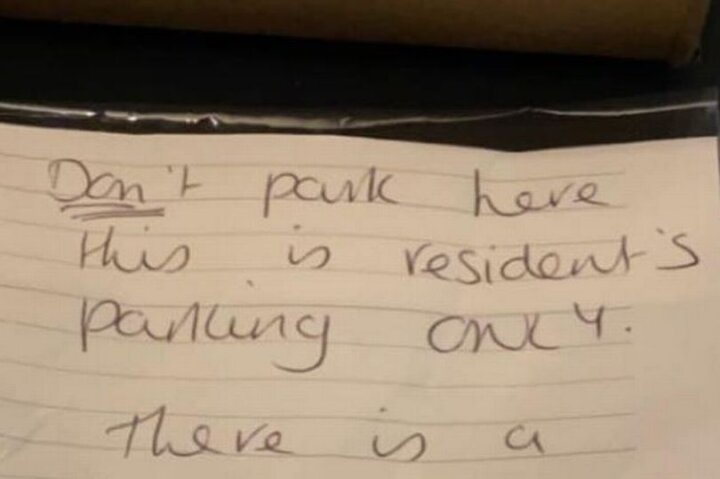 Don't park here
this is resident's
parking only.
there is a